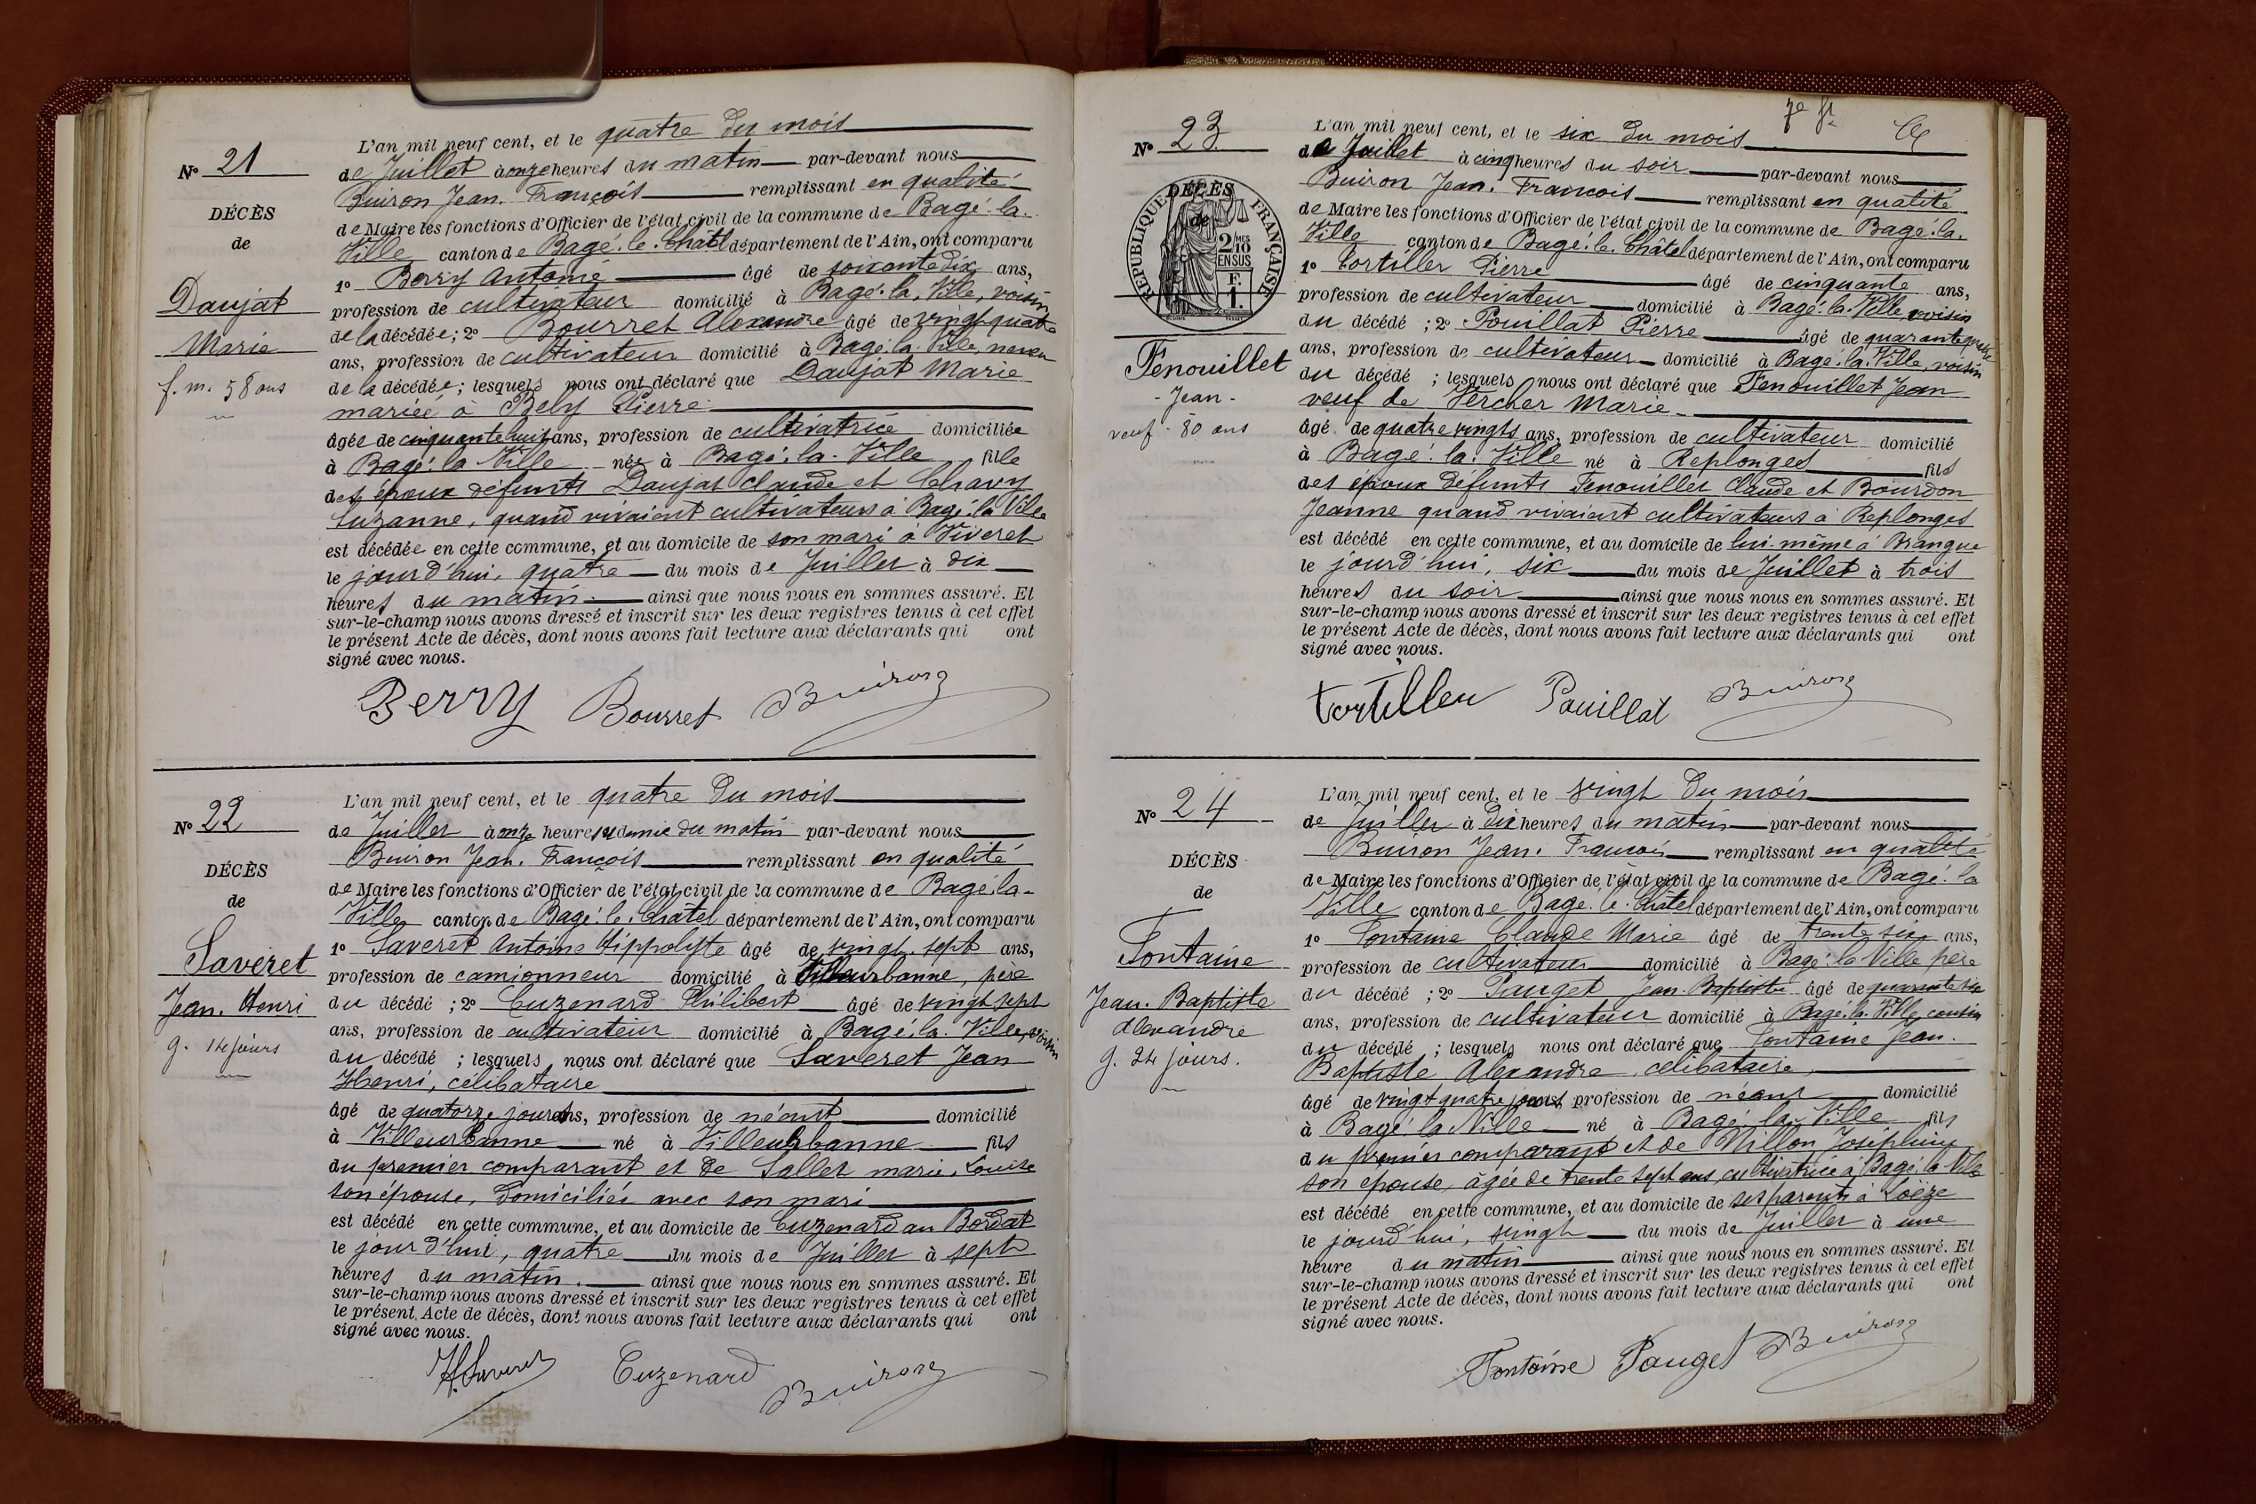 N° 21
DÉCÈS
de
Daujat
Marie
f. m. 58 ans
L'an mil neuf cent, et le quatre du mois
de Juillet à onze heures du matin par-devant nous
Buiron Jean. François remplissant en qualité
de Maire les fonctions d'Officier de l'état civil de la commune de Bagé. la.
Ville canton de Bagé. le. Châtel département de l'Ain, ont comparu
1° Berry Antoine âgé de soixante dix ans,
profession de cultivateur domicilié à Bagé. la. Ville, voisin
de la décédée ; 2° Bourret Alexandre âgé de vingt quatre
ans, profession de cultivateur domicilié à Bagé. la. Ville, neveu
de la décédée ; lesquels nous ont déclaré que Daujat Marie
mariée à Bely Pierre
âgée de cinquante huit ans, profession de cultivatrice domiciliée
à Bagé. la Ville née à Bagé. la. Ville fille
des époux défunts Daujat Claude et Chavy
Suzanne, quand vivaient cultivateurs à Bagé. la Ville
est décédée en cette commune, et au domicile de son mari à Viveret
le jourd'hui, quatre du mois de Juillet à dix
heures du matin. ainsi que nous nous en sommes assuré. Et
sur-le-champ nous avons dressé et inscrit sur les deux registres tenus à cet effet
le présent Acte de décès, dont nous avons fait lecture aux déclarants qui ont
signé avec nous.
Berry Bourret Buiron
N° 22
DÉCÈS
de
Saveret
Jean. Henri
g. 14 jours
L'an mil neuf cent, et le quatre du mois
de Juillet à onze heures et demie du matin par-devant nous
Buiron Jean. François remplissant en qualité
de Maire les fonctions d'Officier de l'état civil de la commune de Bagé. la-
Ville canton de Bagé. le. Châtel département de l'Ain, ont comparu
1° Saveret Antoine Hippolyte âgé de vingt. sept ans,
profession de camionneur domicilié à Villeurbanne, père
du décédé ; 2° Cuzenard Philibert âgé de vingt sept
ans, profession de cultivateur domicilié à Bagé. la. Ville, voisin
du décédé ; lesquels nous ont déclaré que Saveret Jean
Henri, célibataire
âgé de quatorze jours ans, profession de néant domicilié
à Villeurbanne né à Villeurbanne fils
du premier comparant et de Sallet marie. Louise
son épouse, domiciliée avec son mari
est décédé en cette commune, et au domicile de Cuzenard au Bordat
le jour d'hui, quatre du mois de Juillet à sept
heures du matin. ainsi que nous nous en sommes assuré. Et
sur-le-champ nous avons dressé et inscrit sur les deux registres tenus à cet effet
le présent Acte de décès, dont nous avons fait lecture aux déclarants qui ont
signé avec nous.
H. Saveret Cuzenard Buiron
7e ft
N° 23
RÉPUBLIQUE FRANÇAISE
2/10MES
EN SUS
F.
1.
DÉCÈS
de
Fenouillet
- Jean -
veuf - 80 ans
L'an mil neuf cent, et le six du mois
de Juillet à cinq heures du soir par-devant nous
Buiron Jean. François remplissant en qualité
de Maire les fonctions d'Officier de l'état civil de la commune de Bagé. la.
Ville canton de Bagé. le. Châtel département de l'Ain, ont comparu
1° Tortiller Pierre âgé de cinquante ans,
profession de cultivateur domicilié à Bagé. la. Ville, voisin
du décédé ; 2° Pouillat Pierre âgé de quarante quatre
ans, profession de cultivateur domicilié à Bagé. la. Ville, voisin
du décédé ; lesquels nous ont déclaré que Fenouillet Jean
veuf de Vercher Marie
âgé de quatre vingts ans, profession de cultivateur domicilié
à Bagé. la. Ville né à Replonges fils
des époux défunts Fenouillet Claude et Bourdon
Jeanne quand vivaient cultivateurs à Replonges
est décédé en cette commune, et au domicile de lui même à Brangue
le jourd'hui, six du mois de Juillet à trois
heures du soir ainsi que nous nous en sommes assuré. Et
sur-le-champ nous avons dressé et inscrit sur les deux registres tenus à cet effet
le présent Acte de décès, dont nous avons fait lecture aux déclarants qui ont
signé avec nous.
Tortiller Pouillat Buiron
N° 24
DÉCÈS
de
Fontaine
Jean. Baptiste
Alexandre
g. 24 jours.
L'an mil neuf cent, et le vingt du mois
de Juillet à dix heures du matin par-devant nous
Buiron Jean. François remplissant en qualité
de Maire les fonctions d'Officier de l'état civil de la commune de Bagé. la
Ville canton de Bagé. le. Châtel département de l'Ain, ont comparu
1° Fontaine Claude Marie âgé de trente six ans,
profession de cultivateur domicilié à Bagé. la Ville père
du décédé ; 2° Pauget Jean. Baptiste âgé de quarante six
ans, profession de cultivateur domicilié à Bagé. la. Ville, cousin
du décédé ; lesquels nous ont déclaré que Fontaine Jean.
Baptiste Alexandre, célibataire,
âgé de vingt quatre jours, profession de néant domicilié
à Bagé. la Ville né à Bagé. la. Ville fils
du premier comparant et de Millon Joséphine
son épouse, âgée de trente sept ans, cultivatrice à Bagé. la Ville
est décédé en cette commune, et au domicile de ses parents à Loëze
le jourd'hui, vingt du mois de Juillet à une
heure du matin ainsi que nous nous en sommes assuré. Et
sur-le-champ nous avons dressé et inscrit sur les deux registres tenus à cet effet
le présent Acte de décès, dont nous avons fait lecture aux déclarants qui ont
signé avec nous.
Fontaine Pauget Buiron